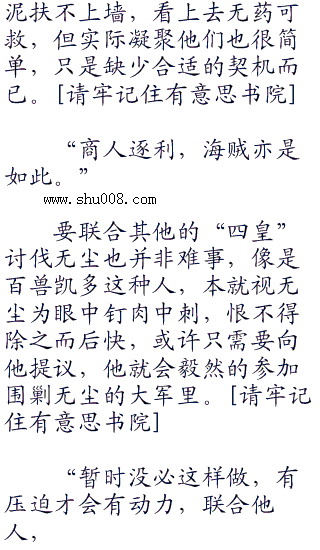 泥扶不上墙，看上去无药可
救，但实际凝聚他们也很简
单，只是缺少合适的契机而
已。[请牢记住有意思书院]
“商人逐利，海贼亦是
如此。”
www.shu008.com
要联合其他的“四皇”
讨伐无尘也并非难事，像是
百兽凯多这种人，本就视无
尘为眼中钉肉中刺，恨不得
除之而后快，或许只需要向
他提议，他就会毅然的参加
围剿无尘的大军里。[请牢记
住有意思书院]
“暂时没必这样做，有
压迫才会有动力，联合他
人，